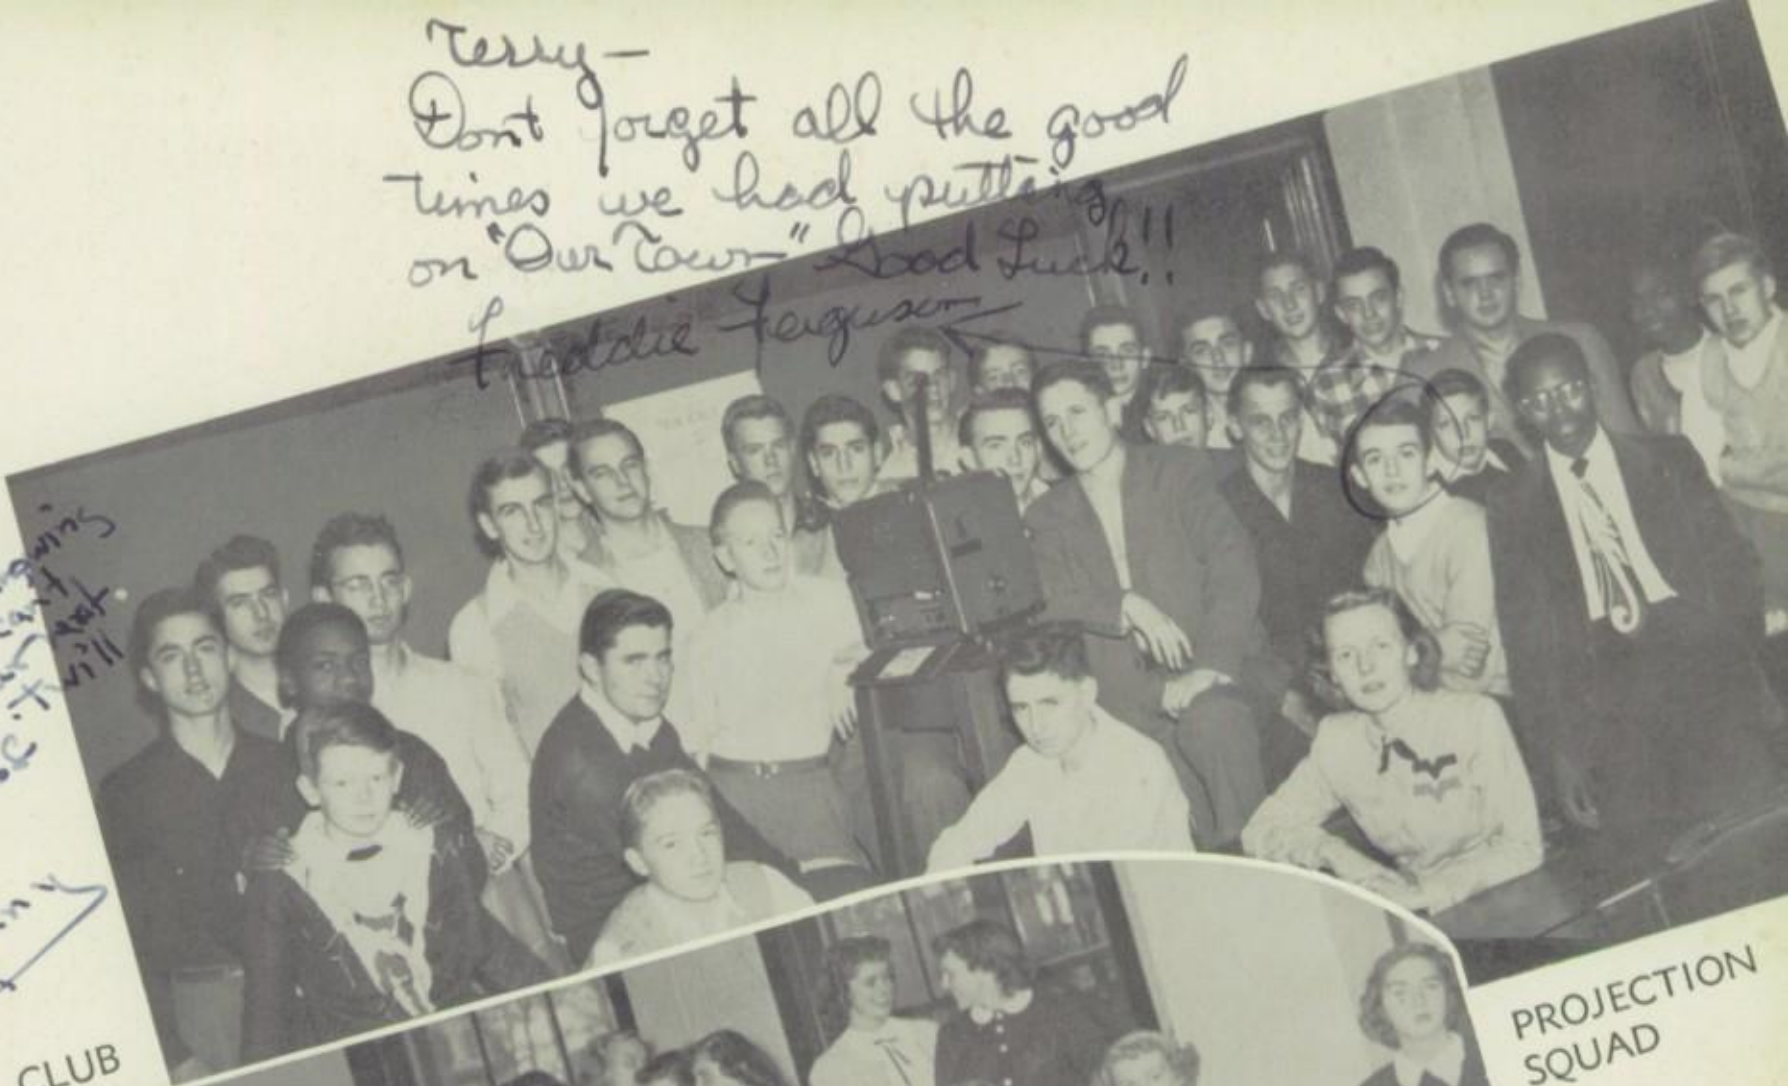 Terry—
Don't forget all the good
times we had putting
on "Our Town" Good Luck!!
Freddie Ferguson
will
CLUB
PROJECTION
SQUAD